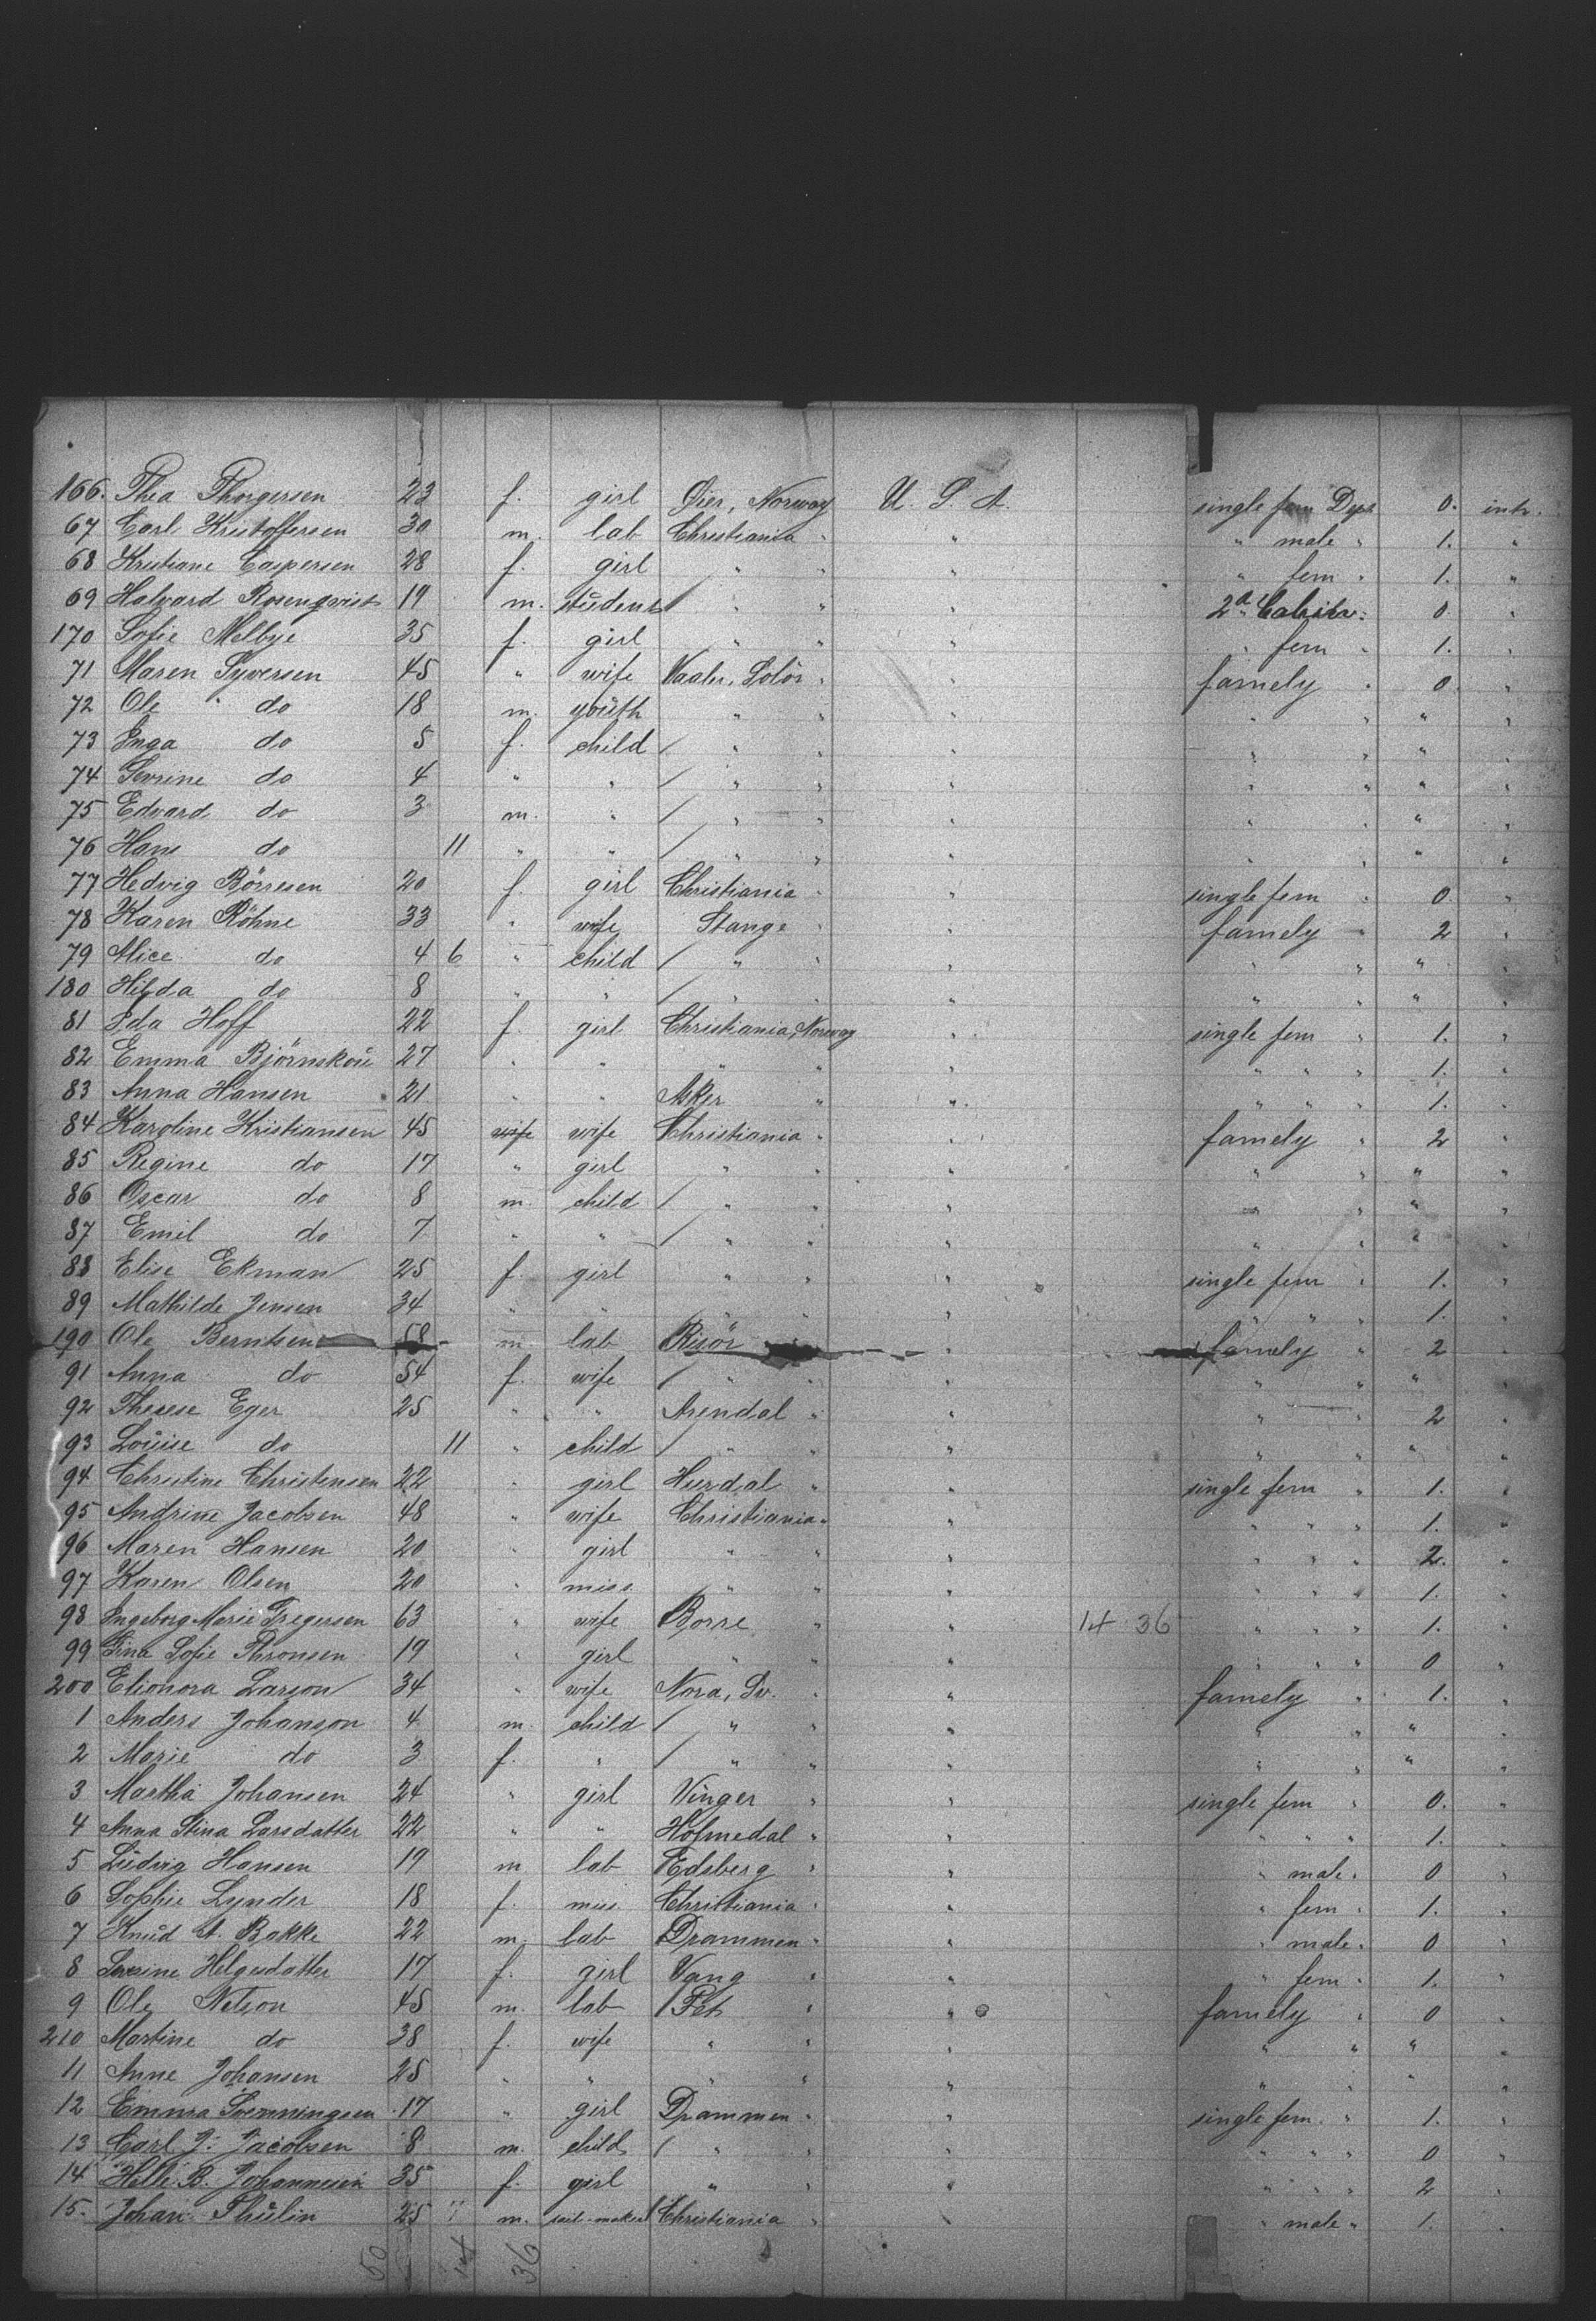 166. Thea Thorgersen 23 f. girl Öier, Norway U. S. A. single fem Dys 0. intr.
67 Carl Kristoffersen 30 m. lab Christiania " " " male " 1. "
68 Kristiane Caspersen 28 f. girl " " " " fem " 1. "
69 Halvard Rosenqvist 19 m. student / " " " 2d Cabin 0 "
170 Sofie Melbye 35 f. girl " " " " fem " 1. "
71 Maren Syversen 45 " wife Vaaler, Solör " " famely " 0 "
72 Ole do 18 m. youth " " " " " " "
73 Inga do 5 f. child / " " " " " " "
74 Sevrine do 4 " " / " " " " " " "
75 Edvard do 3 m. " / " " " " " " "
76 Hans do 11 " " / " " " " " " "
77 Hedvig Börresen 20 f. girl Christiania " " single fem " 0 "
78 Karen Röhne 33 " wife Stange " " famely " 2 "
79 Alice do 4 6 " child / " " " " " " "
180 Hilda do 8 " " / " " " " " " "
81 Ida Hoff 22 f. girl Christiania, Norway " single fem " 1. "
82 Emma Björnskou 27 " " " " " " " " 1. "
83 Anna Hansen 21 " " Asker " " " " " 1. "
84 Karoline Kristiansen 45 wife wife Christiania " " famely " 2 "
85 Regine do 17 " girl " " " " " " "
86 Oscar do 8 m. child / " " " " " " "
87 Emil do 7 " " / " " " " " " "
88 Elise Ekman 25 f. girl " " " single fem " 1. "
89 Mathilde Jensen 34 " " " " " " " " 1. "
190 Ole Berntsen 58 m lab Risör " famely " 2 "
91 Anna do 54 f. wife / " " " " " " "
92 Therese Eger 25 " " Arendal " " " " 2 "
93 Louise do 11 " child / " " " " " " "
94 Christine Christensen 22 " girl Hurdal " " single fem " 1. "
95 Andrine Jacobsen 48 " wife Christiania " " " " " 1. "
96 Maren Hansen 20 " girl " " " " " " 2. "
97 Karen Olsen 20 " miss " " " " " " 1. "
98 Ingeborg Marie Gregersen 63 " wife Borre " " 14 36 " " " 1. "
99 Tina Sofie Thronsen 19 " girl " " " " " " 0 "
200 Elionora Larson 34 " wife Nora, Sv. " " famely " 1. "
1 Anders Johanson 4 m. child / " " " " " " "
2 Marie do 3 f. " / " " " " " " "
3 Martha Johansen 24 " girl Vinger " " single fem " 0. "
4 Anna Stina Larsdatter 22 " " Holmedal " " " " " 1. "
5 Ludvig Hansen 19 m lab Edsberg " " " male " 0 "
6 Sophie Lynder 18 f. miss Christiania " " " fem " 1. "
7 Knud A. Bakke 22 m. lab Drammen " " " male " 0 "
8 Helgesdatter 17 f. girl Vang " " " fem " 1. "
9 Ole Nelson 45 m. lab / Fet " " famely " 0 "
210 Martine do 38 f. wife " " " " " " "
11 Anne Johansen 25 " " " " " " " " "
12 Emma Svenningsen 17 " girl Drammen " " single fem " 1. "
13 Carl J. Jacobsen 8 m. child / " " " " " " 0 "
14 Helle B. Johannesen 35 f. girl " " " " " " 2 "
15. Johan Thulin 25 m. sail-maker Christiania " " " male " 1. "
50 14 36